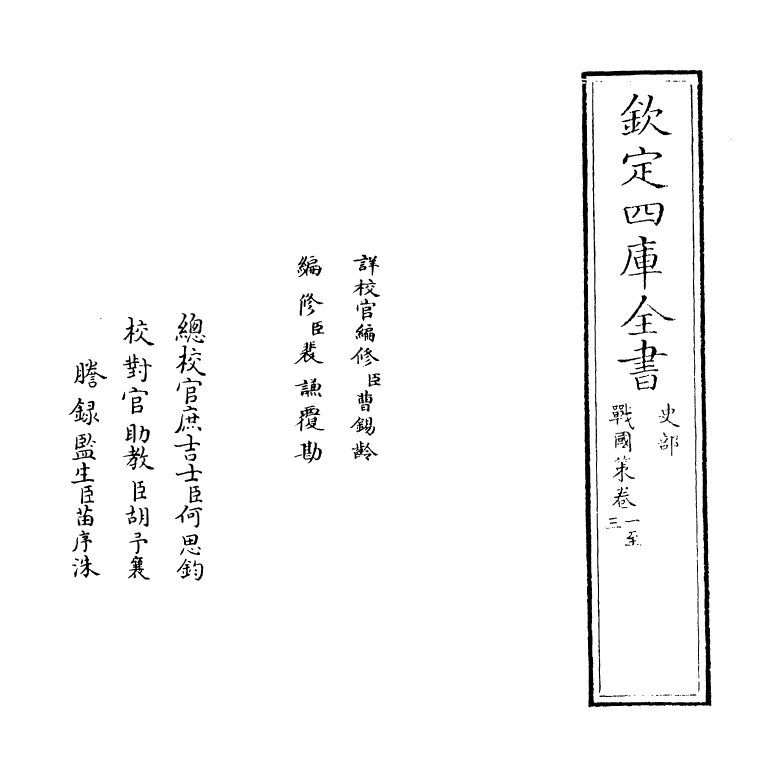 欽定四庫全書
史部
戰國策卷一至三
詳校官編修臣曹錫齡
編修臣裴謙覆勘
總校官庶吉士臣何思鈞
校對官助教臣胡予襄
謄録監生臣苗序洙